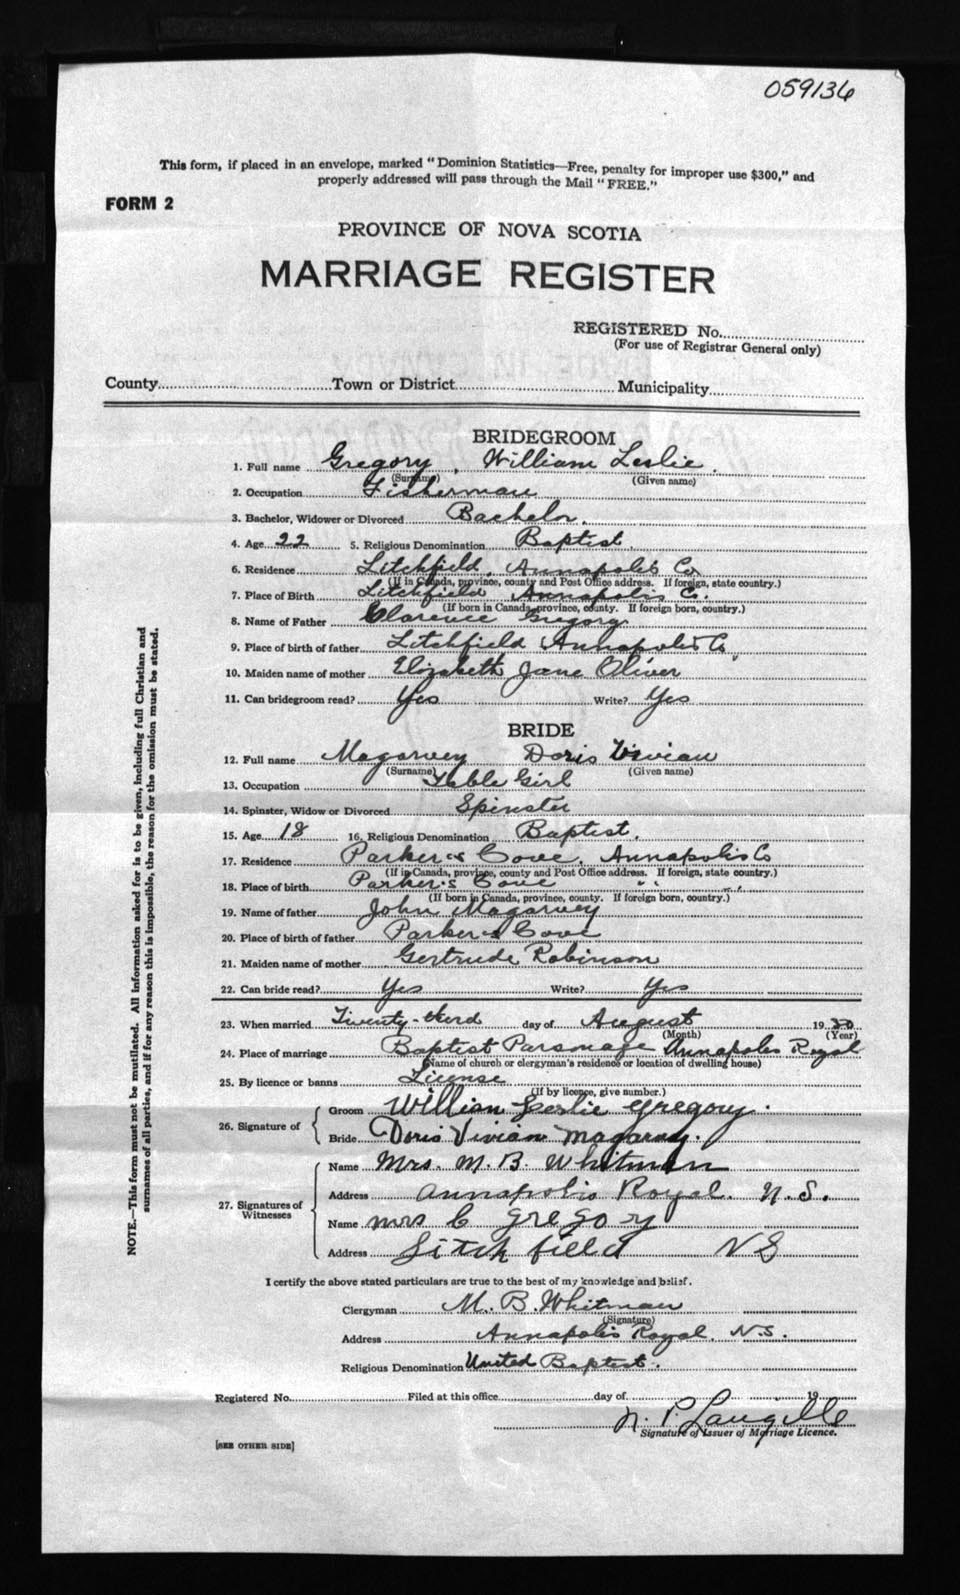 059136
This form, if placed in an envelope, marked "Dominion Statistics—Free, penalty for improper use $300," and
properly addressed will pass through the Mail "FREE."
FORM 2
PROVINCE OF NOVA SCOTIA
MARRIAGE REGISTER
REGISTERED No.
(For use of Registrar General only)
County Town or District Municipality
BRIDEGROOM
1. Full name Gregory, William Leslie.
(Surname) (Given name)
2. Occupation Fisherman
3. Bachelor, Widower or Divorced Bachelor.
4. Age 22 5. Religious Denomination Baptist.
6. Residence Litchfield, Annapolis Co
(If in Canada, province, county and Post Office address. If foreign, state country.)
7. Place of Birth Litchfield Annapolis Co.
(If born in Canada, province, county. If foreign born, country.)
8. Name of Father Clarence Gregory
9. Place of birth of father Litchfield Annapolis Co
10. Maiden name of mother Elizabeth Jane Oliver "
11. Can bridegroom read? Yes Write? Yes
BRIDE
12. Full name Magarvey Doris Vivian
(Surname) (Given name)
13. Occupation Table Girl
14. Spinster, Widow or Divorced Spinster
15. Age 18 16. Religious Denomination Baptist.
17. Residence Parker's Cove, Annapolis Co
(If in Canada, province, county and Post Office address. If foreign, state country.)
18. Place of birth Parker's Cove " "
(If born in Canada, province, county. If foreign born, country.)
19. Name of father John Magarvey
20. Place of birth of father Parker's Cove
21. Maiden name of mother Gertrude Robinson
22. Can bride read? Yes Write? Yes
23. When married Twenty-third day of August 1930
(Month) (Year)
24. Place of marriage Baptist Parsonage Annapolis Royal
(Name of church or clergyman's residence or location of dwelling house)
25. By licence or banns License
(If by licence, give number.)
26. Signature of Groom William Leslie Gregory.
Bride Doris Vivian Magarvey.
27. Signatures of Witnesses Name Mrs. M. B. Whitman
Address Annapolis Royal. N.S.
Name Mrs C Gregory
Address Litchfield NS
I certify the above stated particulars are true to the best of my knowledge and belief.
Clergyman M. B. Whitman
(Signature)
Address Annapolis Royal, N.S.
Religious Denomination United Baptist.
Registered No. Filed at this office day of 19
N. P. Langille
Signature of Issuer of Marriage Licence.
[SEE OTHER SIDE]
NOTE.—This form must not be mutilated. All information asked for is to be given, including full Christian and
surnames of all parties, and if for any reason this is impossible, the reason for the omission must be stated.